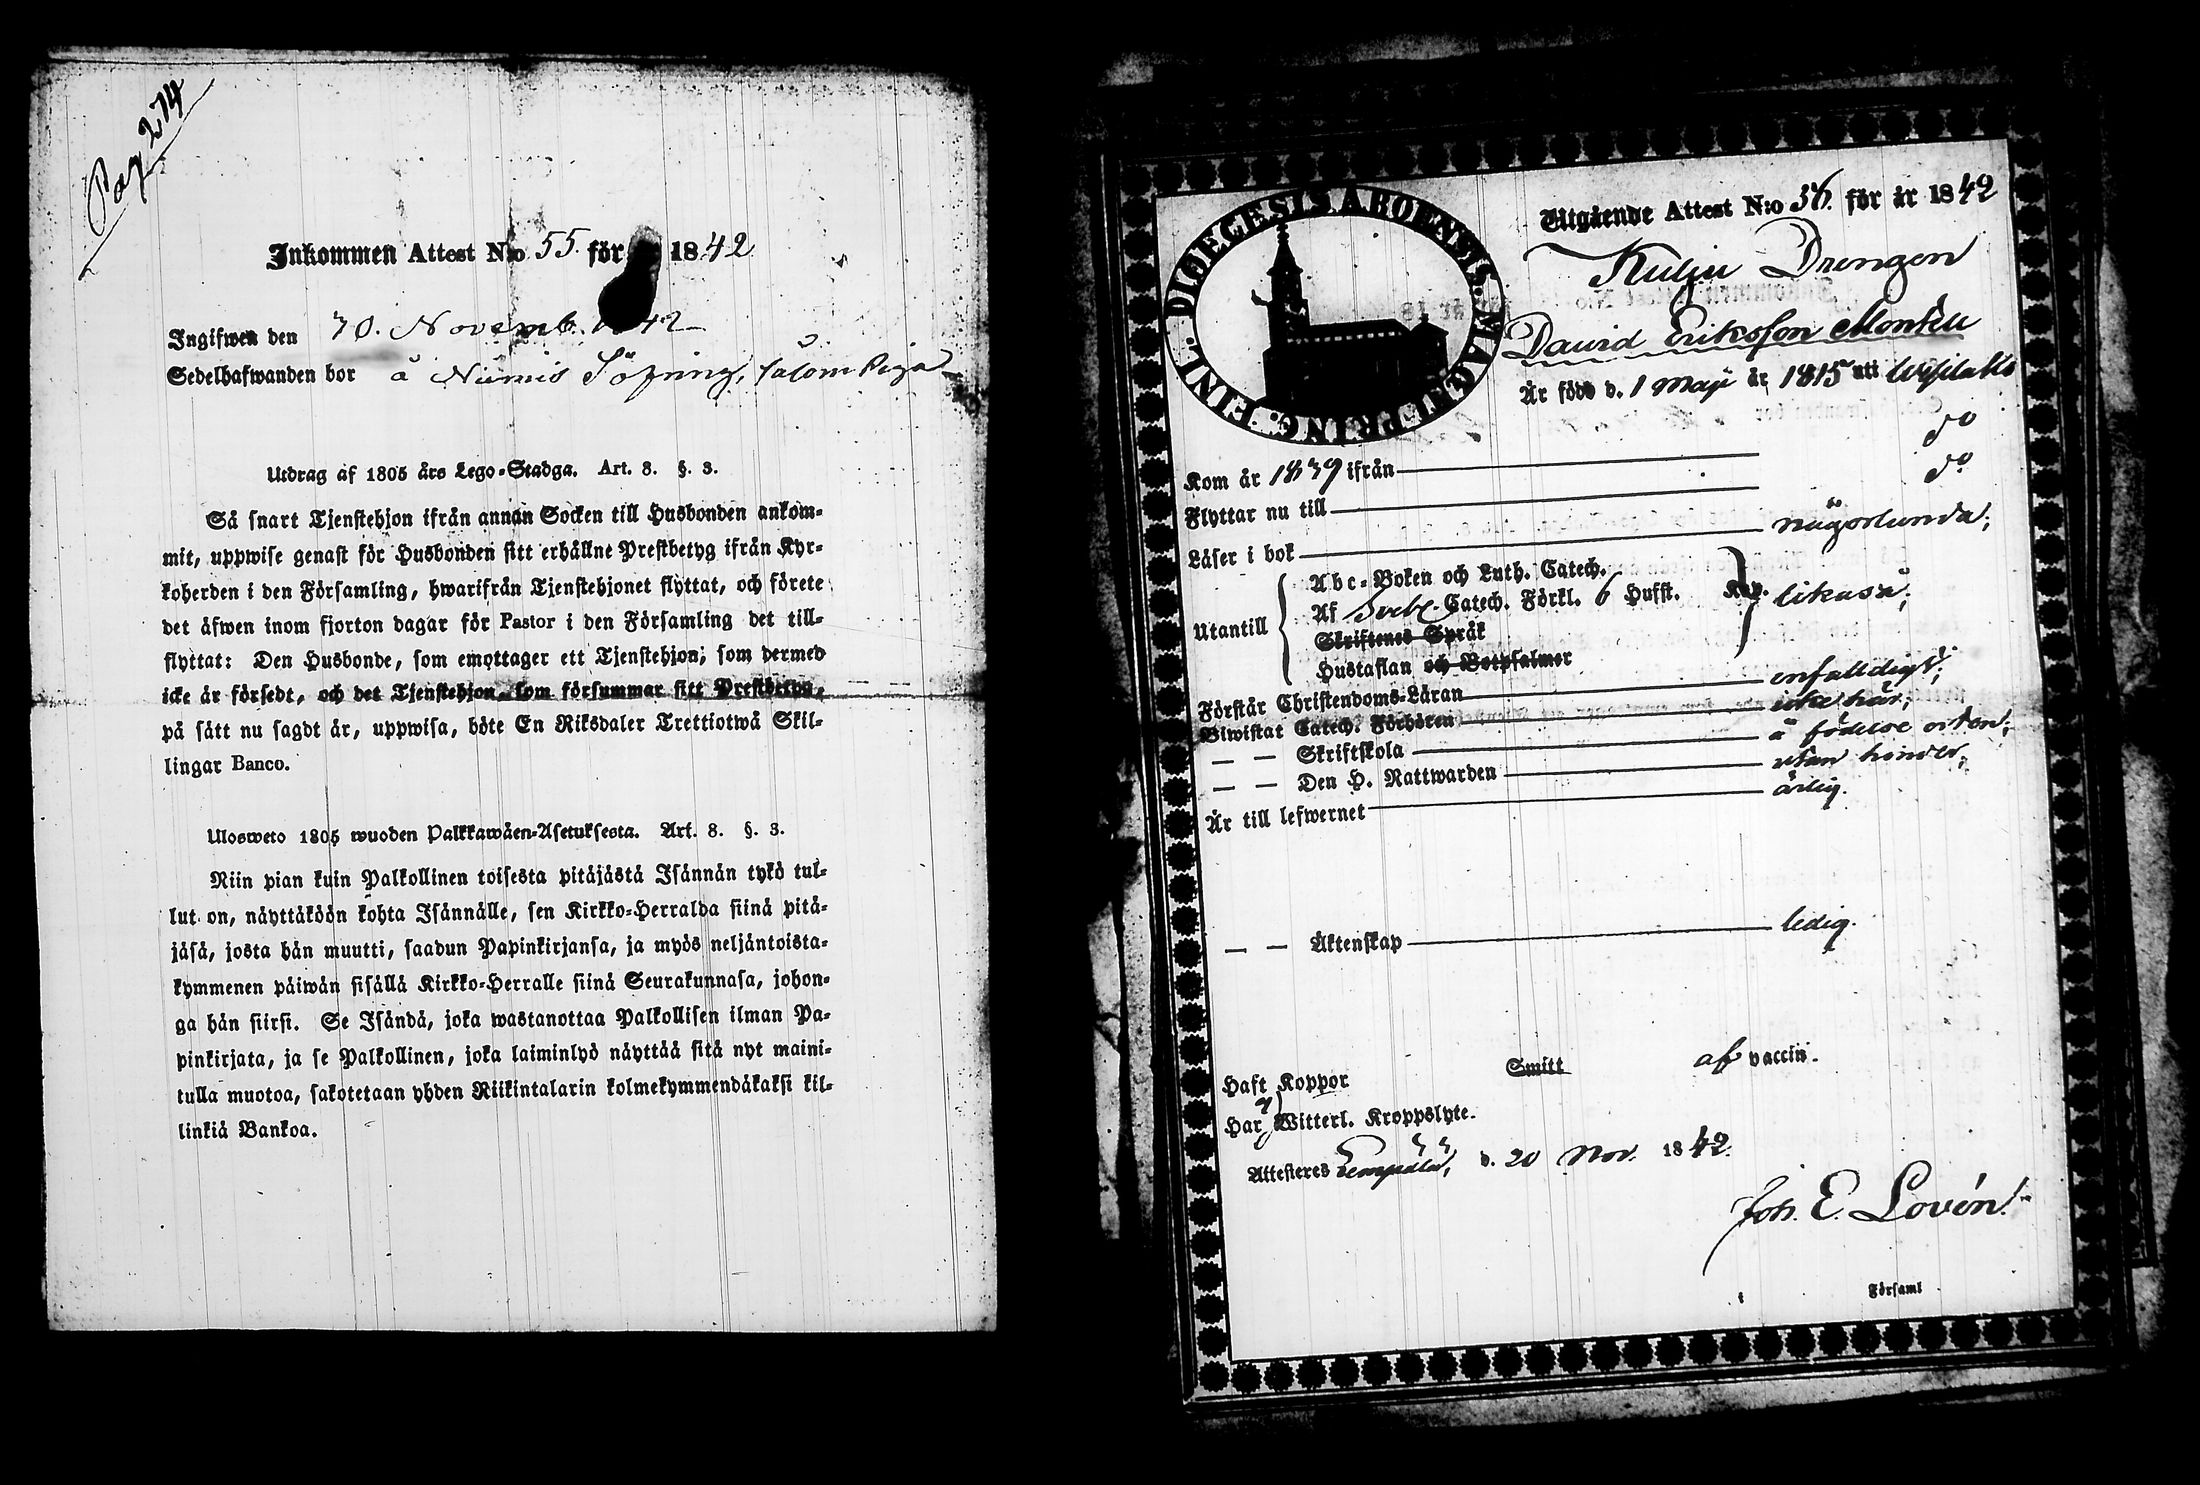 Pag 274
Inkommen Attest N:o 55. för 1842
Ingifwen den 30. Novemb. 1842
Sedelhafwanden bor å Niemis Söfring, såsom Piga
Utdrag af 1805 års Lego-Stadga. Art. 8. §. 3.
Så snart Tjenstehjon ifrån annan Socken till Husbonden ankom-
mit, uppwise genast för Husbonden sitt erhållne Prestbetyg ifrån Kyr-
koherden i den Församling, hwarifrån Tjenstehjonet flyttat, och förete
det äfwen inom fjorton dagar för Pastor i den Församling det till-
flyttat: Den Husbonde, som emottager ett Tjenstehjon, som dermed
icke är försedt, och det Tjenstehjon, som försummar sitt Prestbetyg,
på sätt nu sagdt är, uppwisa, böte En Riksdaler Trettiotwå Skil-
lingar Banco.
Ulosweto 1805 wuoden Palkkawäen-Asetuksesta. Art. 8. §. 3.
Niin pian kuin Palkollinen toisesta pitäjästä Isännän tykö tul-
lut on, näyttäköön kohta Isännälle, sen Kirkko-Herralda siinä pitä-
jäsä, josta hän muutti, saadun Papinkirjansa, ja myös neljäntoista-
kymmenen päiwän sisällä Kirkko-Herralle siinä Seurakunnasa, johon-
ga hän siirsi. Se Isändä, joka wastanottaa Palkollisen ilman Pa-
pinkirjata, ja se Palkollinen, joka laiminlyö näyttää sitä nyt maini-
tulla muotoa, sakotetaan yhden Riikintalarin kolmekymmendäkaksi kil-
linkiä Bankoa.
DIOECESIS ABOENSIS. MAG. PRINC. FINL.
Utgående Attest N:o 36. för år 1842
Kulju Drengen
David Eriksson Monkeu
Är född d. 1 Maji år 1815 uti Wesilaks
Kom år 1839 ifrån do
Flyttar nu till do
Läser i bok någorlunda;
Utantill
Abc-Boken och Luth. Catech.
Af Svebe. Catech. Förkl. 6 Hufst. Kap. likaså;
Skriftenes Språk
Hustaflan och Botpsalmer
Förstår Christendoms-Läran enfalldigt;
Biwistat Catech. Förhören icke här;
— — Skriftskola å födelse orten;
— — Den H. Nattwarden utan hinder;
Är till lefwernet ärlig.
— — Äktenskap ledig.
Haft Koppor Smitt af vaccin.
Har Witterl. Kroppslyte.
Attesteres Lempälä, d. 20 Nov. 1842.
Joh. E. Lovén.
Församl